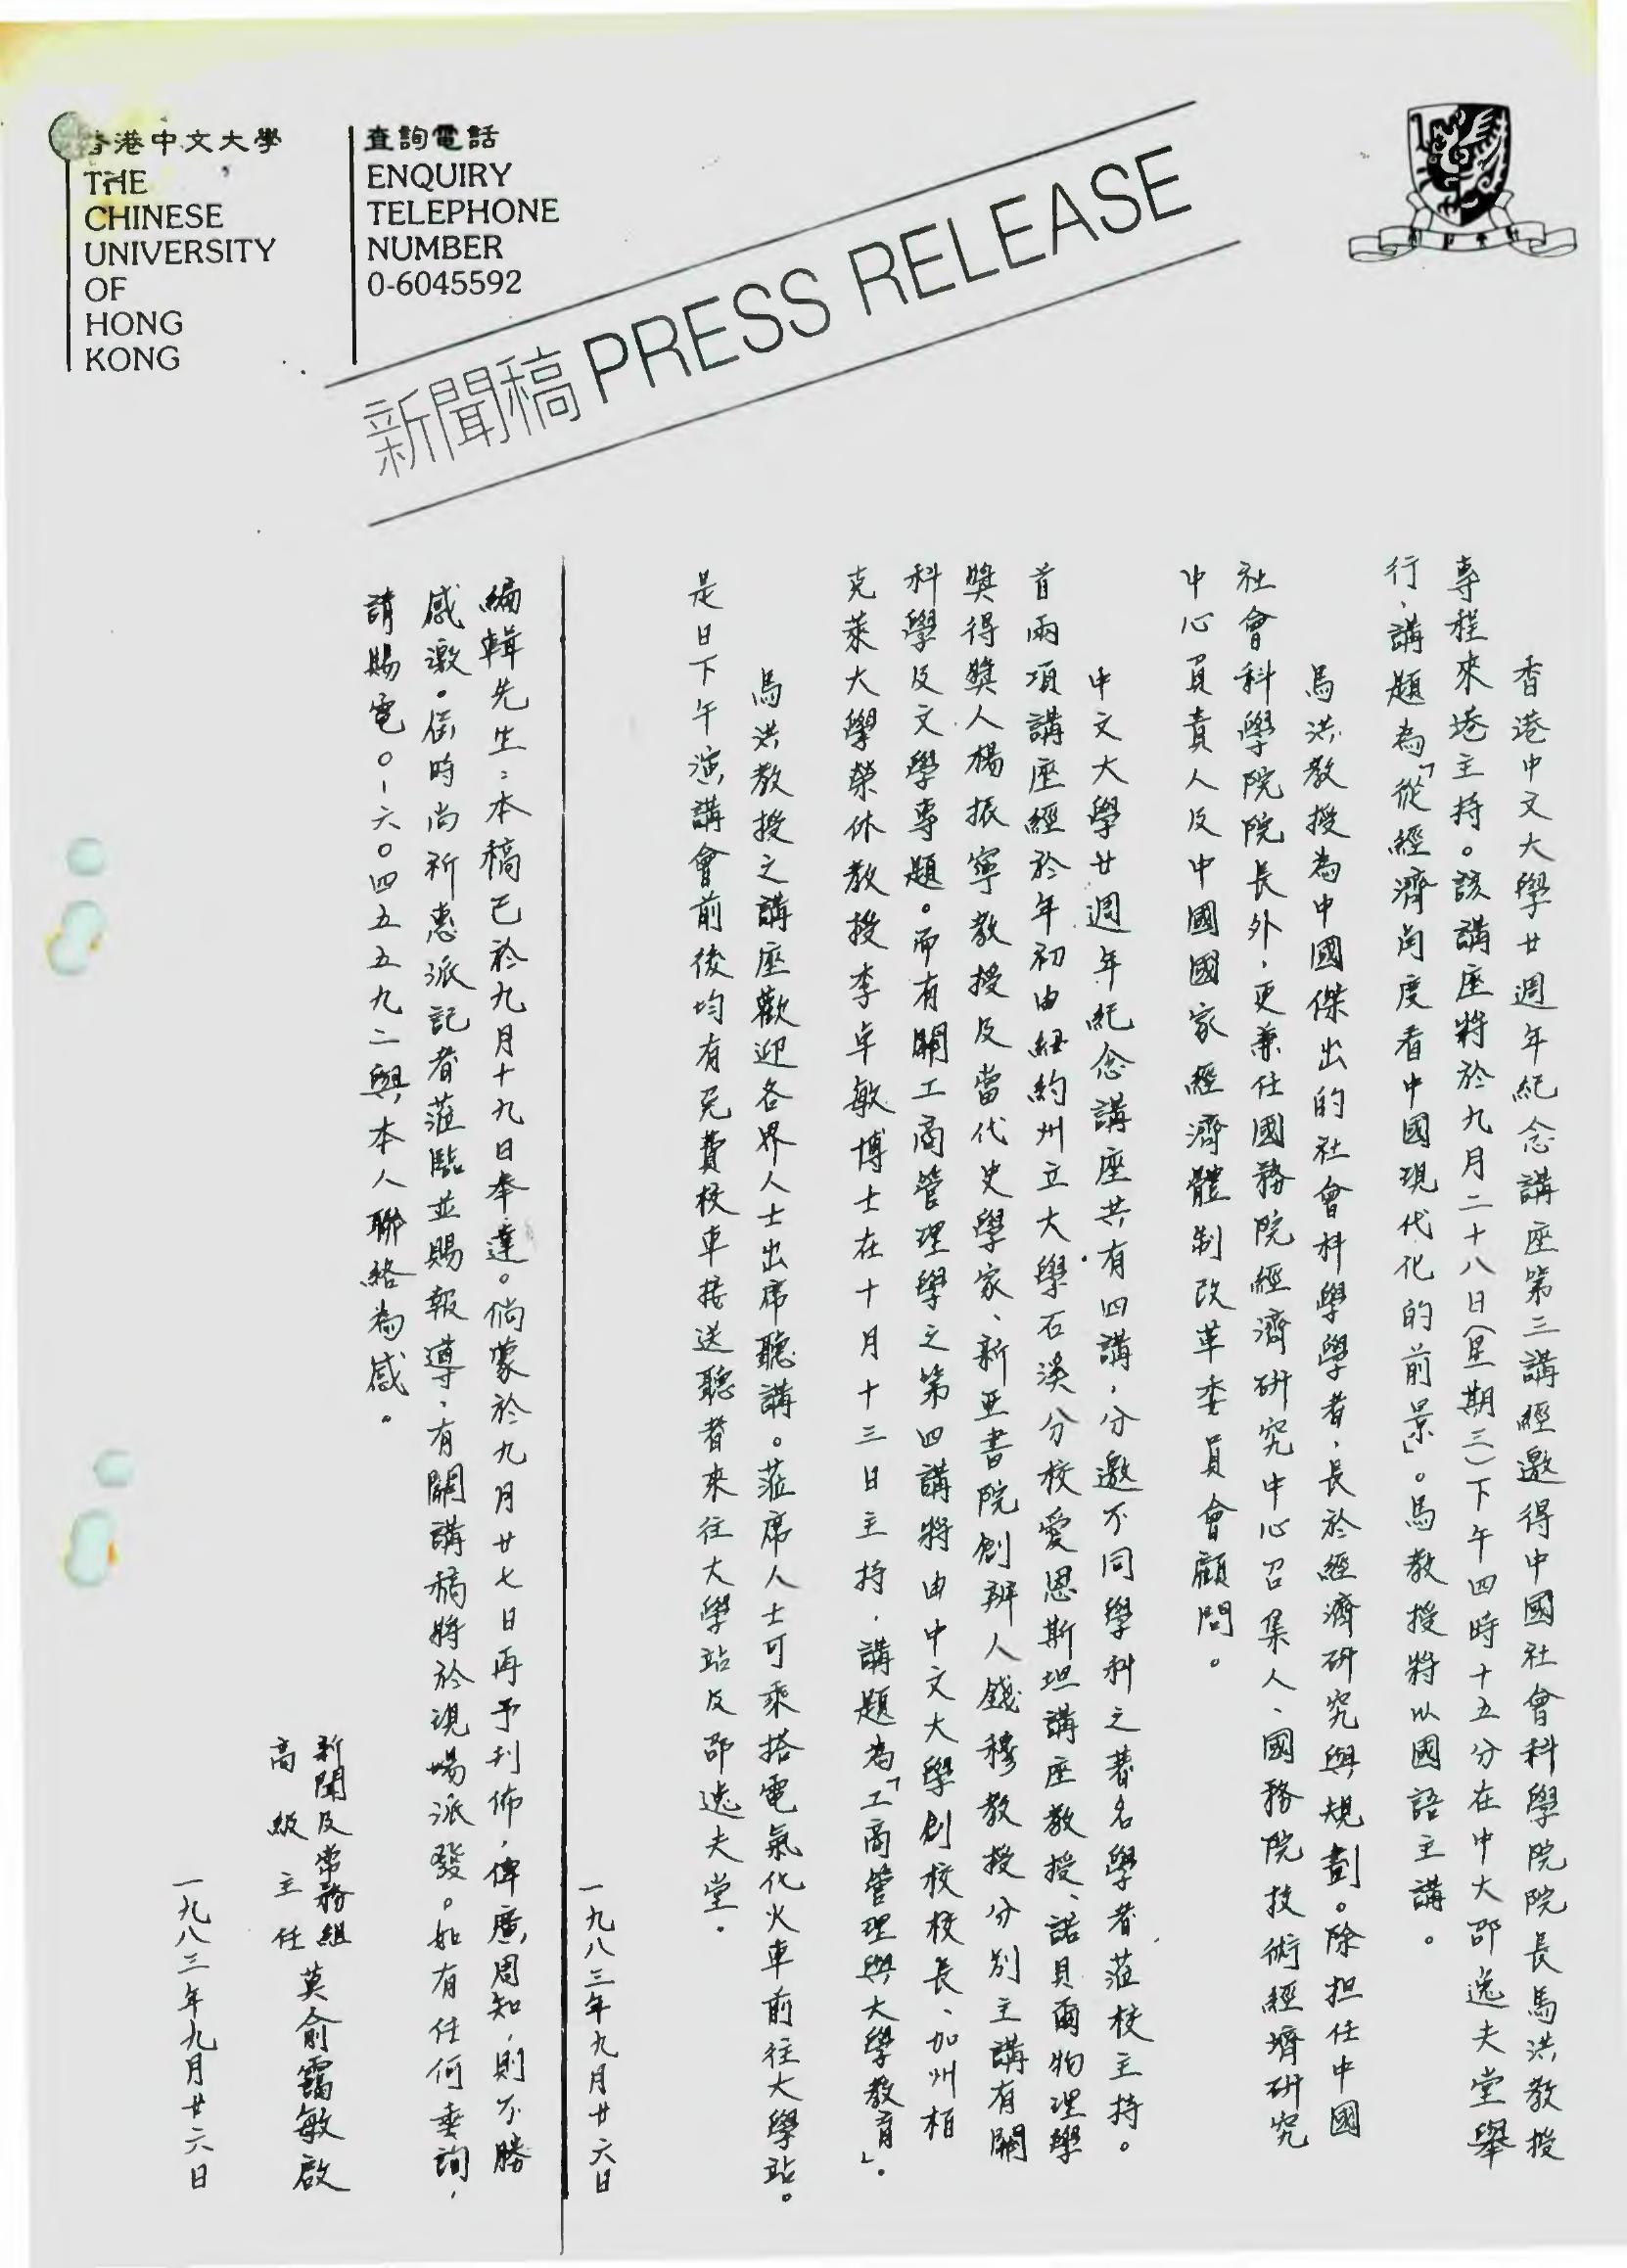 香港中文大學
THE
CHINESE
UNIVERSITY
OF
HONG
KONG
查詢電話
ENQUIRY
TELEPHONE
NUMBER
0-6045592
新聞稿 PRESS RELEASE
香港中文大學廿週年紀念講座第三講經邀得中國社會科學院院長馬洪教授
專程來港主持。該講座將於九月二十八日(星期三)下午四時十五分在中大邵逸夫堂舉
行,講題為「從經濟角度看中國現代化的前景」。馬教授將以國語主講。
馬洪教授為中國傑出的社會科學學者,長於經濟研究與規劃。除担任中國
社會科學院院長外,更兼任國務院經濟研究中心召集人、國務院技術經濟研究
中心負責人及中國國家經濟體制改革委員會顧問。
中文大學廿週年紀念講座共有四講,分邀不同學科之著名學者蒞校主持。
首兩項講座經於年初由紐約州立大學石溪分校愛恩斯坦講座教授、諾貝爾物理學
獎得獎人楊振寧教授及當代史學家、新亞書院創辦人錢穆教授分別主講有關
科學及文學專題。而有關工商管理學之第四講將由中文大學創校校長、加州柏
克萊大學榮休教授李卓敏博士在十月十三日主持,講題為「工商管理與大學教育」。
馬洪教授之講座歡迎各界人士出席聽講。蒞席人士可乘搭電氣化火車前往大學站。
是日下午演講會前後均有免費校車接送聽者來往大學站及邵逸夫堂。
一九八三年九月廿六日
編輯先生:本稿已於九月十九日奉達。倘蒙於九月廿七日再予刊佈,俾廣周知,則不勝
感激。屆時尚祈惠派記者蒞臨並賜報導,有關講稿將於現場派發。如有任何垂詢,
請賜電〇-六〇四五五九二與本人聯絡為感。
新聞及常務組
高級主任 莫俞靄敏啟
一九八三年九月廿六日